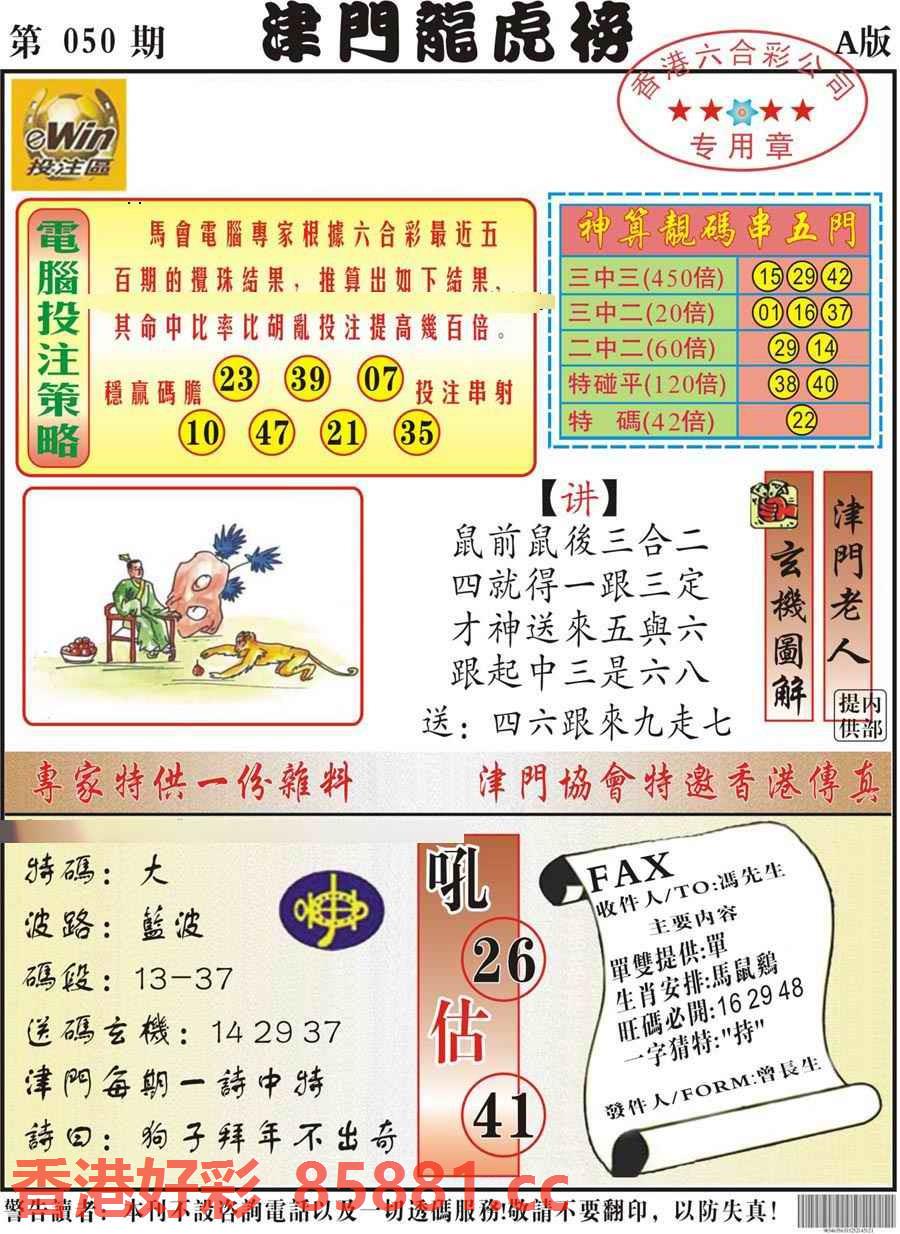 第 050 期
津門龍虎榜
A版
香港六合彩公司
专用章
eWin
投注區
電腦投注策略
馬會電腦專家根據六合彩最近五
百期的攪珠結果，推算出如下結果，
其命中比率比胡亂投注提高幾百倍。
穩贏碼膽 23 39 07 投注串射
10 47 21 35
神算靚碼串五門
三中三(450倍) 15 29 42
三中二(20倍) 01 16 37
二中二(60倍) 29 14
特碰平(120倍) 38 40
特 碼(42倍) 22
【讲】
鼠前鼠後三合二
四就得一跟三定
才神送來五與六
跟起中三是六八
送：四六跟來九走七
玄機圖解
津門老人
内部提供
專家特供一份雜料
津門協會特邀香港傳真
特碼：大
波路：藍波
碼段：13-37
送碼玄機：14 29 37
津門每期一詩中特
詩曰：狗子拜年不出奇
吼
26
估
41
FAX
收件人/TO:馮先生
主要内容
單雙提供:單
生肖安排:馬鼠鷄
旺碼必開:16 29 48
一字猜特:"持"
發件人/FORM:曾長生
香港好彩 85881.cc
警告讀者：本刊不設咨詢電話以及一切透碼服務!敬請不要翻印，以防失真!